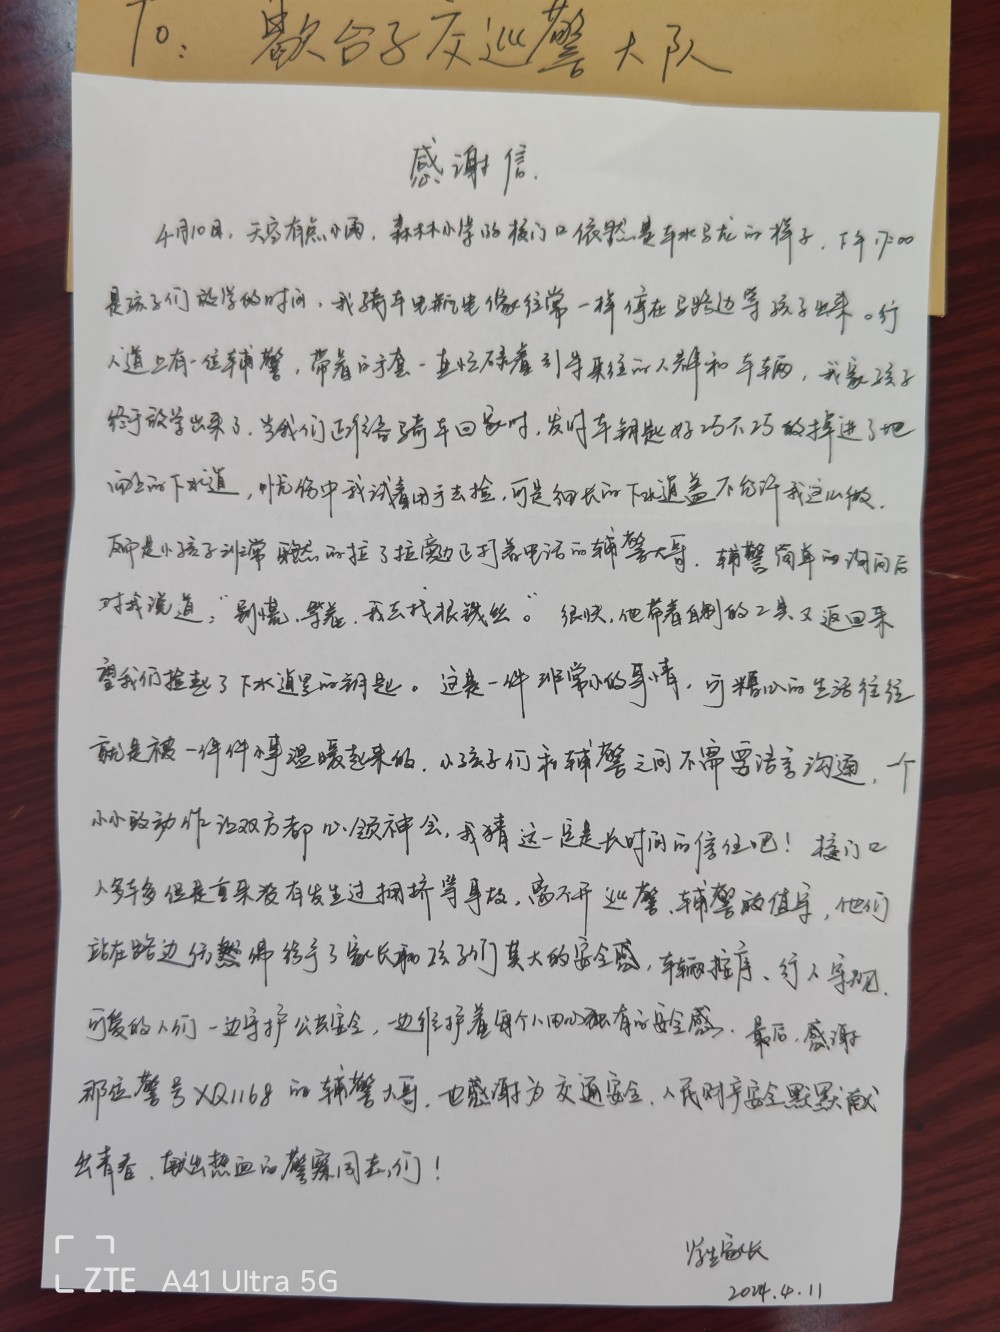 To: 歇台子交巡警大队
感谢信.
4月10日，天空有点小雨，森林小学的校门口依然是车水马龙的样子，下午17:00
是孩子们放学的时间，我骑车电瓶电像往常一样停在马路边等孩子出来。行
人道上有一位辅警，带着白手套一直忙碌着引导来往的人群和车辆，我家孩子
终于放学出来了，当我们正准备骑车回家时，发时车钥匙好巧不巧的掉进了地
面上的下水道，忧伤中我试着用手去捡，可是细长的下水道盖不允许我这么做，
反而是小孩子非常自然的拉了拉旁边正打着电话的辅警大哥，辅警简单的询问后
对我说道："别慌，等着，我去找根铁丝。"很快，他带着自制的工具又返回来
望我们捡起了下水道里的钥匙。这是一件非常小的事情，可糟心的生活往往
就是被一件件小事温暖起来的，小孩子们和辅警之间不需要语言沟通，一个
小小的动作让双方都心领神会，我猜这一定是长时间的信任吧！校门口
人多车多但是重来没有发生过拥挤等事故，离不开巡警、辅警的值守，他们
站在路边仿佛给予了家长和孩子们莫大的安全感，车辆按序、行人守规，
可爱的人们一边守护公共安全，一边维护着每个人内心独有的安全感，最后，感谢
那位警号XQ1168的辅警大哥，也感谢为交通安全、人民财产安全默默献
出青春、献出热血的警察同志们！
学生家长
2024.4.11
ZTE A41 Ultra 5G